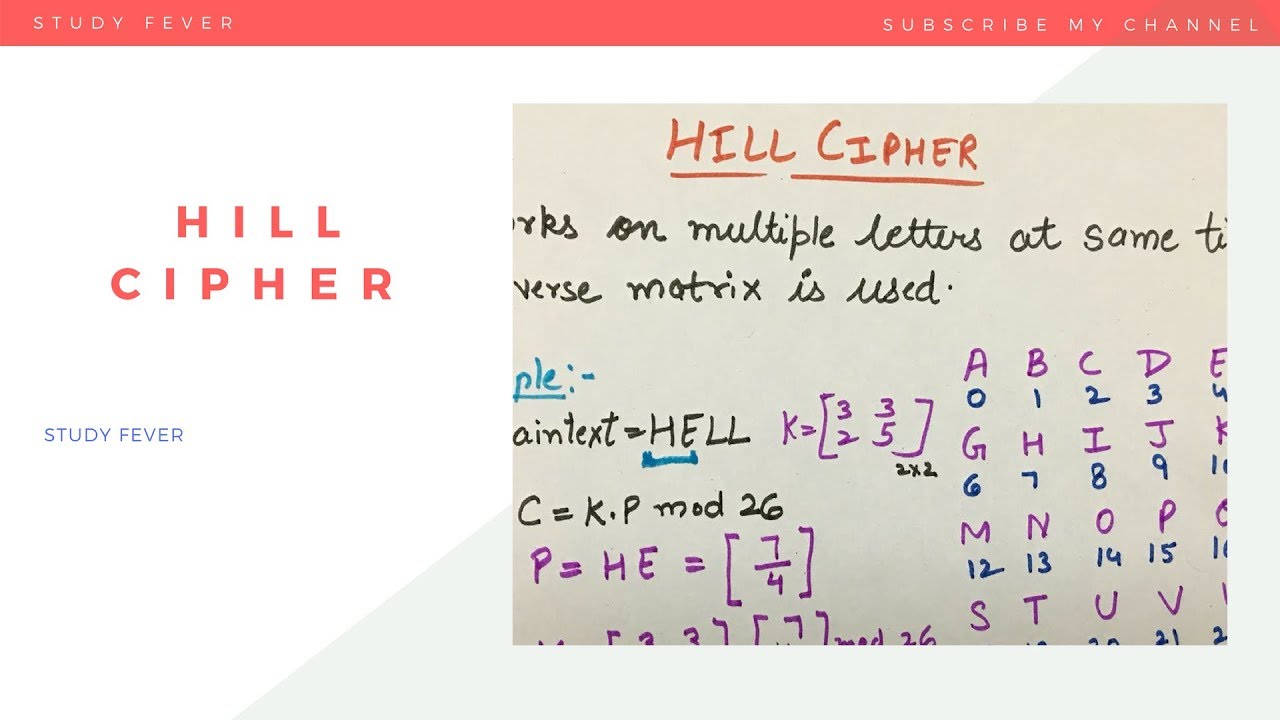 STUDY FEVER
SUBSCRIBE MY CHANNEL
HILL
CIPHER
STUDY FEVER
HILL CIPHER
rks on multiple letters at same ti
verse matrix is used.
ple:-
aintext=HELL K=[3 3
2 5]
2x2
C=K.P mod 26
P=HE=[7
4]
[3 3][7 ]mod 26
A B C D E
0 1 2 3 4
G H I J K
6 7 8 9 1
M N O P
12 13 14 15 1
S T U V
21 2